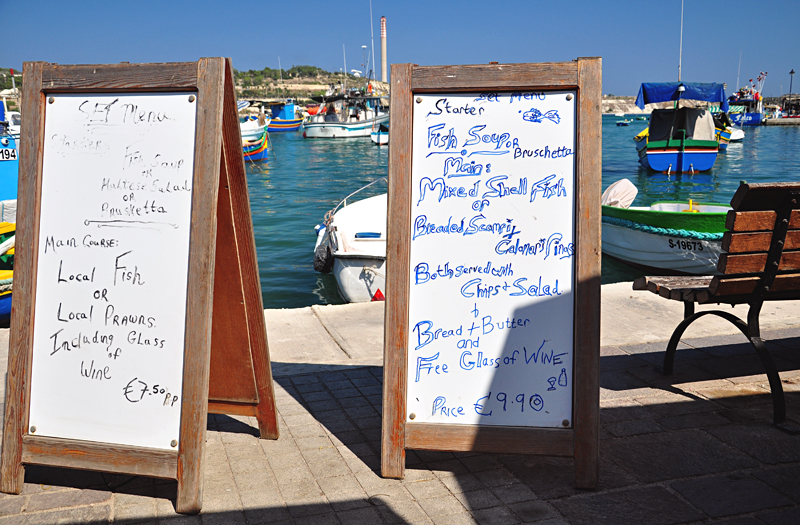 Set Menu
Starter
Fish Soup
OR
Maltese Salad
OR
Brusketta
Main Course:
Local Fish
OR
Local Prawns.
Including Glass
of
Wine
€7.50 P.P
Set Menu
Starter
Fish Soup
OR
Bruschetta
Main:
Mixed Shell Fish
or
Breaded Scampi
Calamari Rings
Both served with
Chips + Salad
+
Bread + Butter
and
Free Glass of Wine
Price €9.90
194
S-19673